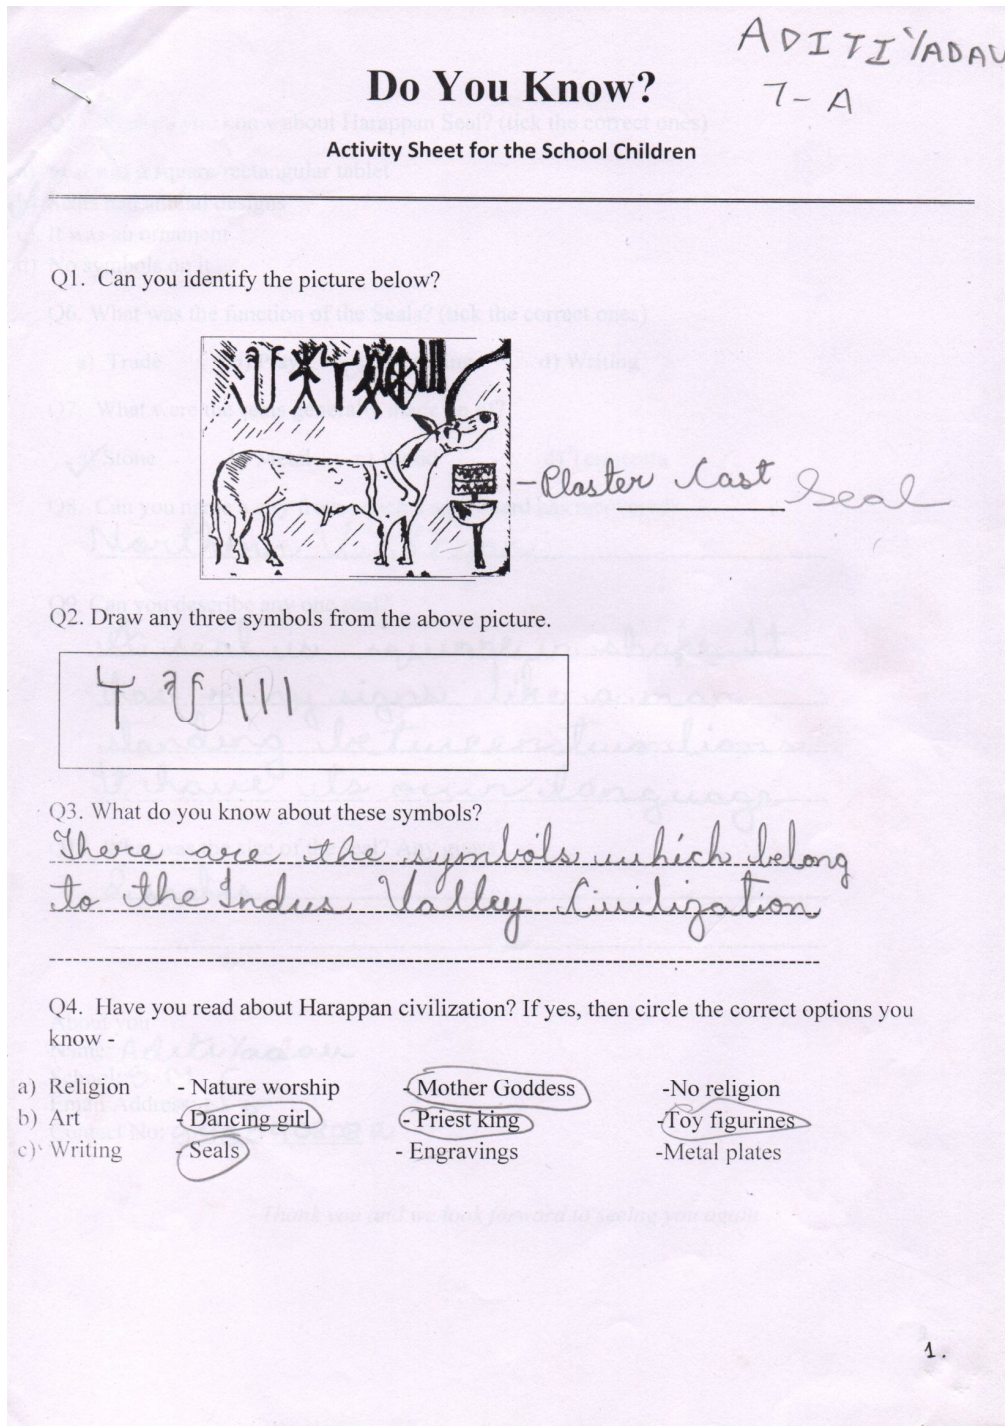 ADITI YADAV
7-A
Do You Know?
Activity Sheet for the School Children
Q1. Can you identify the picture below?
- Plaster Cast Seal
Q2. Draw any three symbols from the above picture.
Q3. What do you know about these symbols?
There are the symbols which belong
to the Indus Valley Civilization
Q4. Have you read about Harappan civilization? If yes, then circle the correct options you
know -
a) Religion - Nature worship - Mother Goddess -No religion
b) Art - Dancing girl - Priest king -Toy figurines
c) Writing - Seals - Engravings -Metal plates
1.